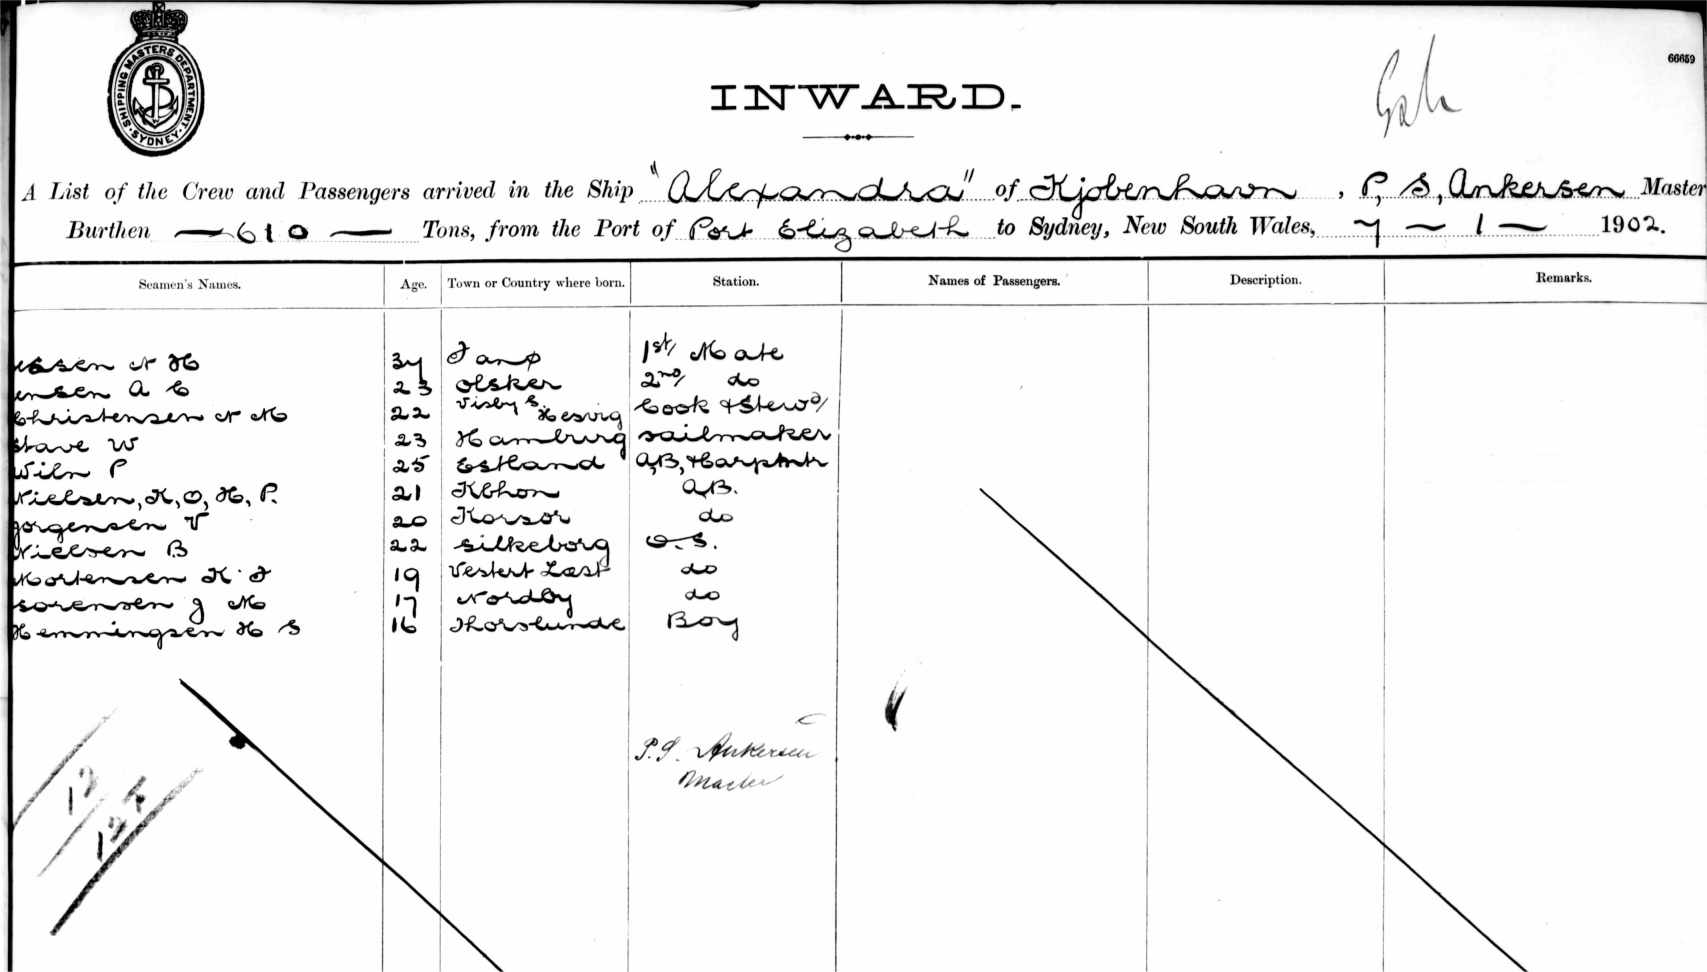 SHIPPING MASTERS DEPARTMENT. SYDNEY.
66659
INWARD.
A List of the Crew and Passengers arrived in the Ship "Alexandra" of Kjobenhavn, P, S, Ankersen Master
Burthen — 610 — Tons, from the Port of Port Elizabeth to Sydney, New South Wales, 7 — 1 — 1902.
Seamen's Names. Age. Town or Country where born. Station. Names of Passengers. Description. Remarks.
essen N H 34 Fanø 1st/ Mate
ensen A C 23 Olsker 2nd/ do
Christensen N M 22 Visby S. Hesvig Cook & Stewd/
Stave W 23 Hamburg sailmaker
Wiln P 25 Estland A,B,
Nielsen, K, O, H, P. 21 Kbhon A.B.
Jorgensen V 20 Korsor do
Nielsen B 22 Silkeborg O.S.
Mortensen K. F 19 Vestert do
Sorensen J M 17 Nordby do
Hemmingsen H S 16 Thorslunde Boy
P.S. Ankersen
Master
12